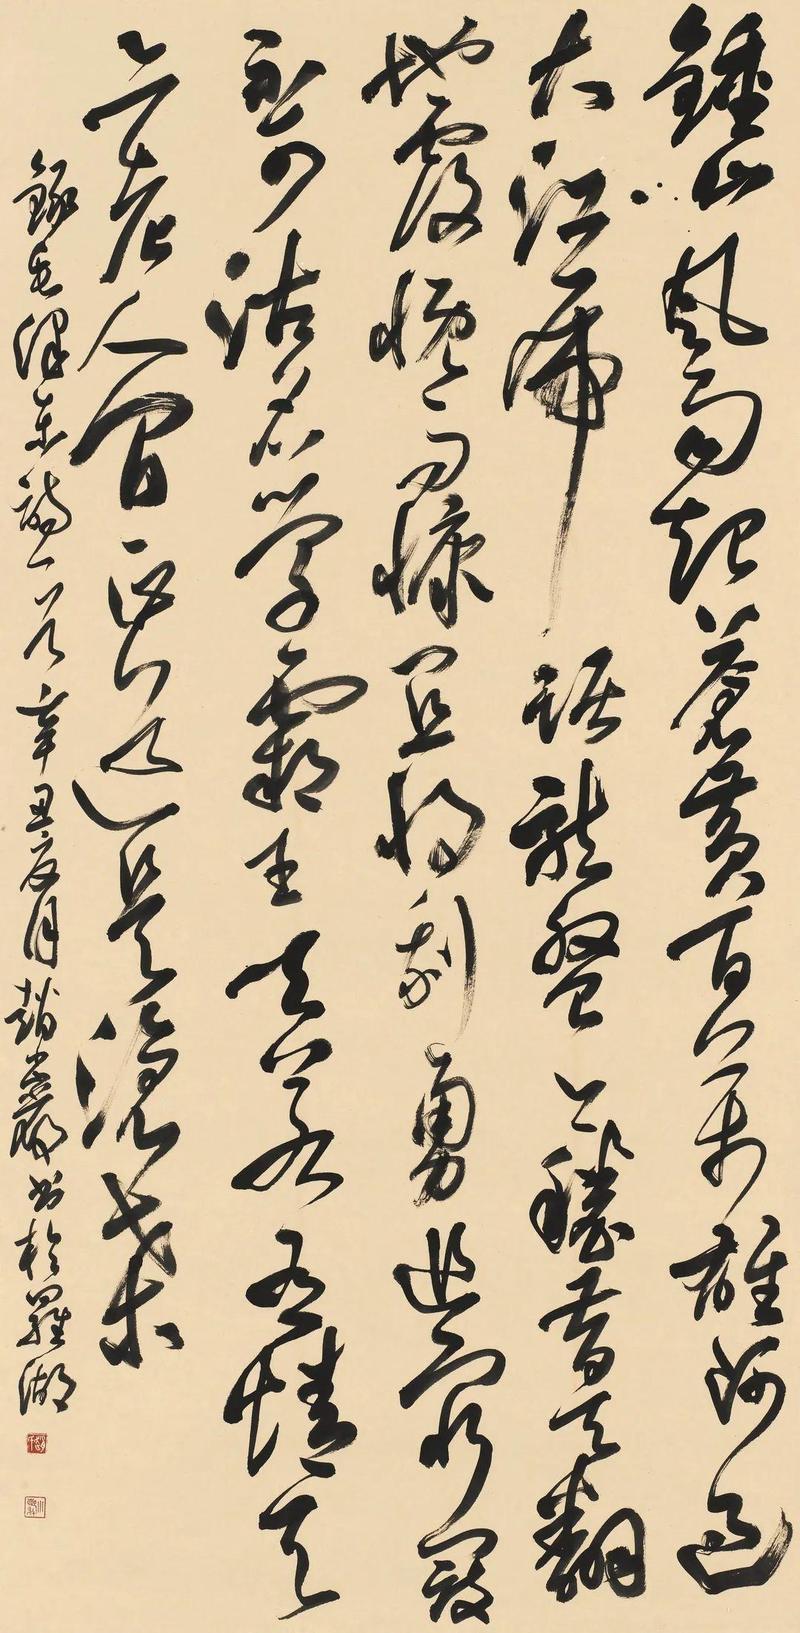 鍾山風雨起蒼黃百萬雄師過
大江虎踞龍盤今勝昔天翻
地覆慨而慷宜將剩勇追窮寇
不可沽名學霸王天若有情天
亦老人間正道是滄桑
錄毛澤東詩一首辛丑夏月趙書於羅湖